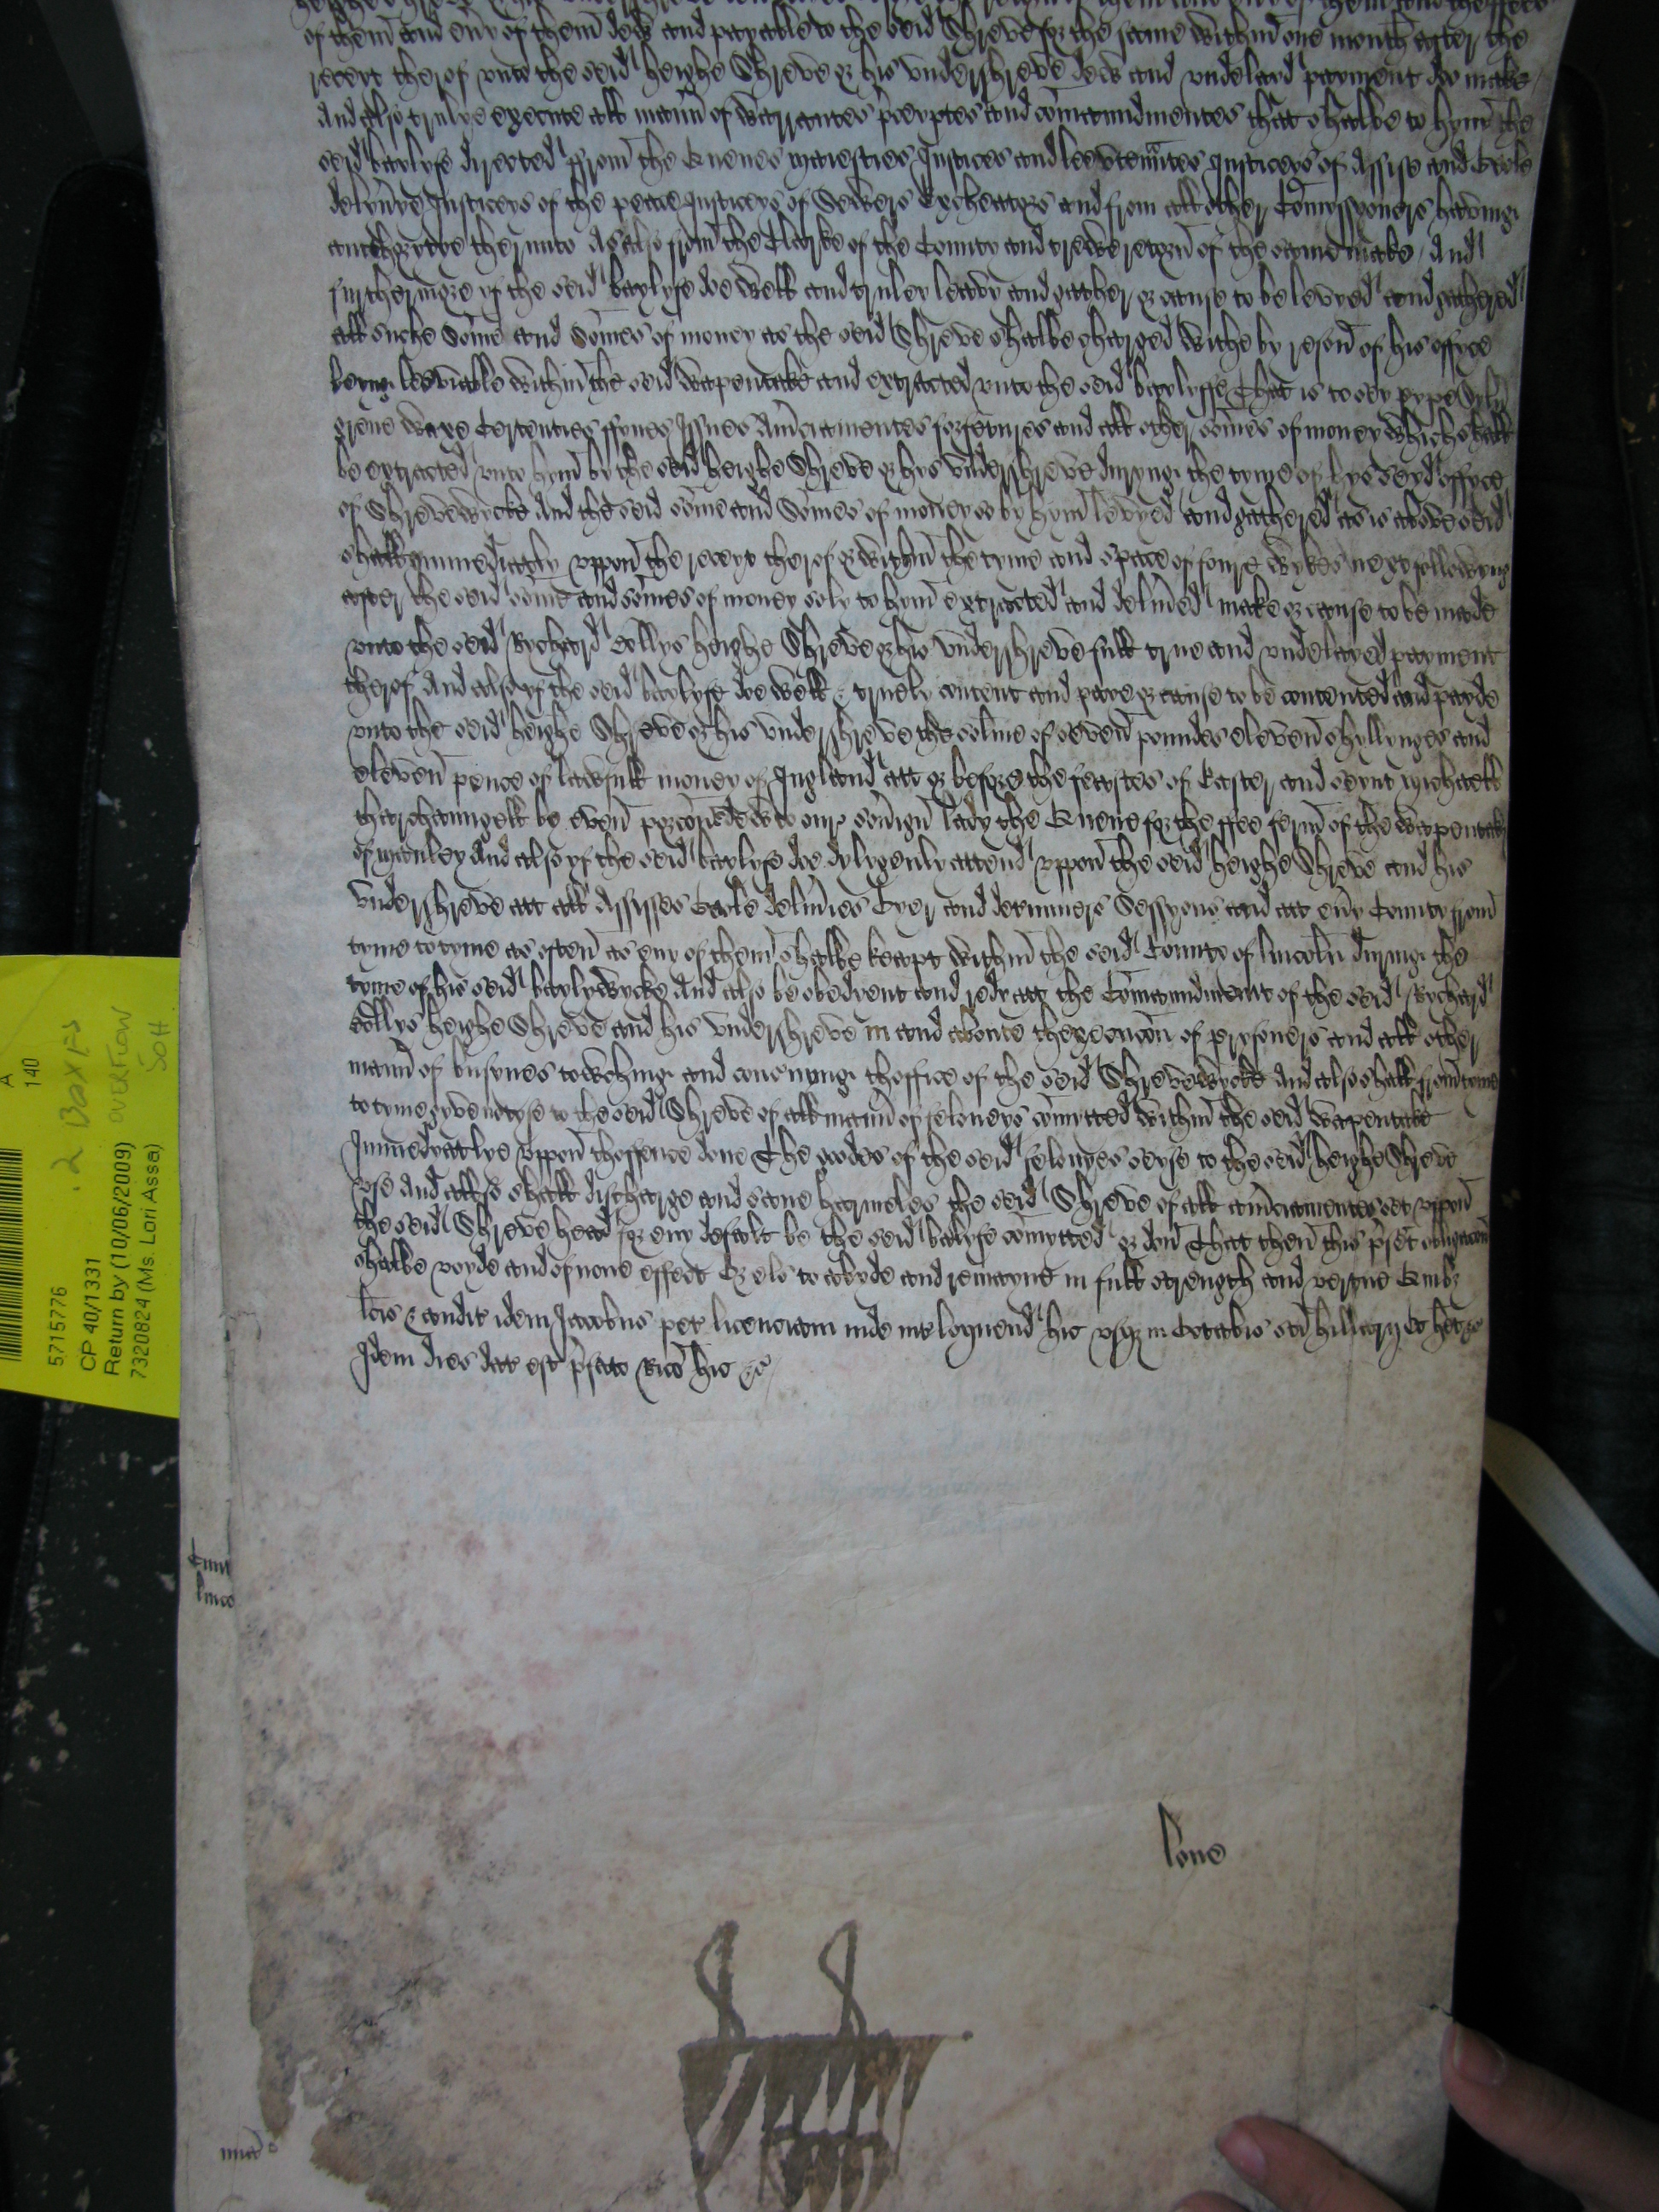 of them and eny of them dew and payable to the seid Shreve for the same within one month after the
receyt therof unto the seid heighe Shreve or his undershreve dew and undelayd payment doe make
And also trulye execute all mann of warrantes pceyptes and comaundmentes that shalbe to hym the
seid baylyfe directed ffrom the Quenes maiesties Justices and leevtennntes Justiceys of Assise and Gaole
delyvye Justiceys of the peace Justiceys of Sewers Excheators and from all other Comyssyoners having
aucthorytye therunto As also from the Clarke of the County and trewe retorn of the same make And
furthermore yf the seid baylyfe doe well and truley leavy and gather or cause to be levyed and gathered
all suche Some and Somes of money as the seid Shreve shalbe charged withe by reson of his offyce
beyng leviable within the seid wapentake and extracted unto the seid baylyffe That is to sey pype Sylv
grene waxe Certenties ffynes Issues Amciamentes forfetures and all other somes of money which shall
be extracted unto hym by the seid heighe Shreve or hys undershreve duryng the tyme of hys seyd offyce
of Shrevewycke And the seid some and Somes of money so by hym levyed and gathered as is above seid
shall ymmediatly uppon the receyt therof or within the tyme and space of foure wykes next followyng
after the seid some and somes of money soly to hym extracted and delived make or cause to be made
unto the seid Rychard Bollys heighe Shreve or his undershreve full true and undelayed payment
therof And also yf the seid baylyfe doe well & truely content and paye or cause to be contented and payde
unto the seid heighe Shreve or his undershreve the some of seven poundes eleven shyllynges and
eleven pence of lawfull money of Ingland att or before the feastes of Easter and seynt Michaell
tharchaungell be even porcons dew to our sovign lady the Quene for the ffee ferm of the wapentake
of Manley And also yf the seid baylyfe doe dylygenly attend uppon the seid heighe Shreve and his
undershreve att all Assisses Gaole delivies Oyer and determiners Sessyons and att evy County from
tyme to tyme as often as eny of them shalbe keapt within the seid County of lincoln during the
tyme of his seid baylywycke And also be obedyent and redy att the Comaundment of the seid Rychard
Bollys heighe Shreve and his undershreve in and aboute thexecucon of prysoners and all other
mann of busynes towching and concnyng thoffice of the seid Shrevewycke And also shall from tyme
to tyme gyve notyse to the seid Shreve of all mann of feloneys comytted within the seid wapentake
Immedyatlye uppon thoffence done The goodes of the seid felonyes seyse to the seid heighe Shreve
use And allso shall discharge and save harmeles the seid Shreve of all amciamentes set uppon
the seid Shreve head for eny defalt be the seid balyfe comytted or don That then this psent obligacon
shalbe voyde and of none effect Or els to abyde and remayne in full strength and vertue Quibz
lcis & audit idem Jacobus pet licenciam inde intloquend hic usqz in Octabis sci hillarij Et het &c
Idem dies dat est pfato Rico hic &c
lone
5715776
CP 40/1331
Return by (10/06/2009)
7320824 (Ms. Lori Assa)
A
140
.2 BOXES
OVERFLOW